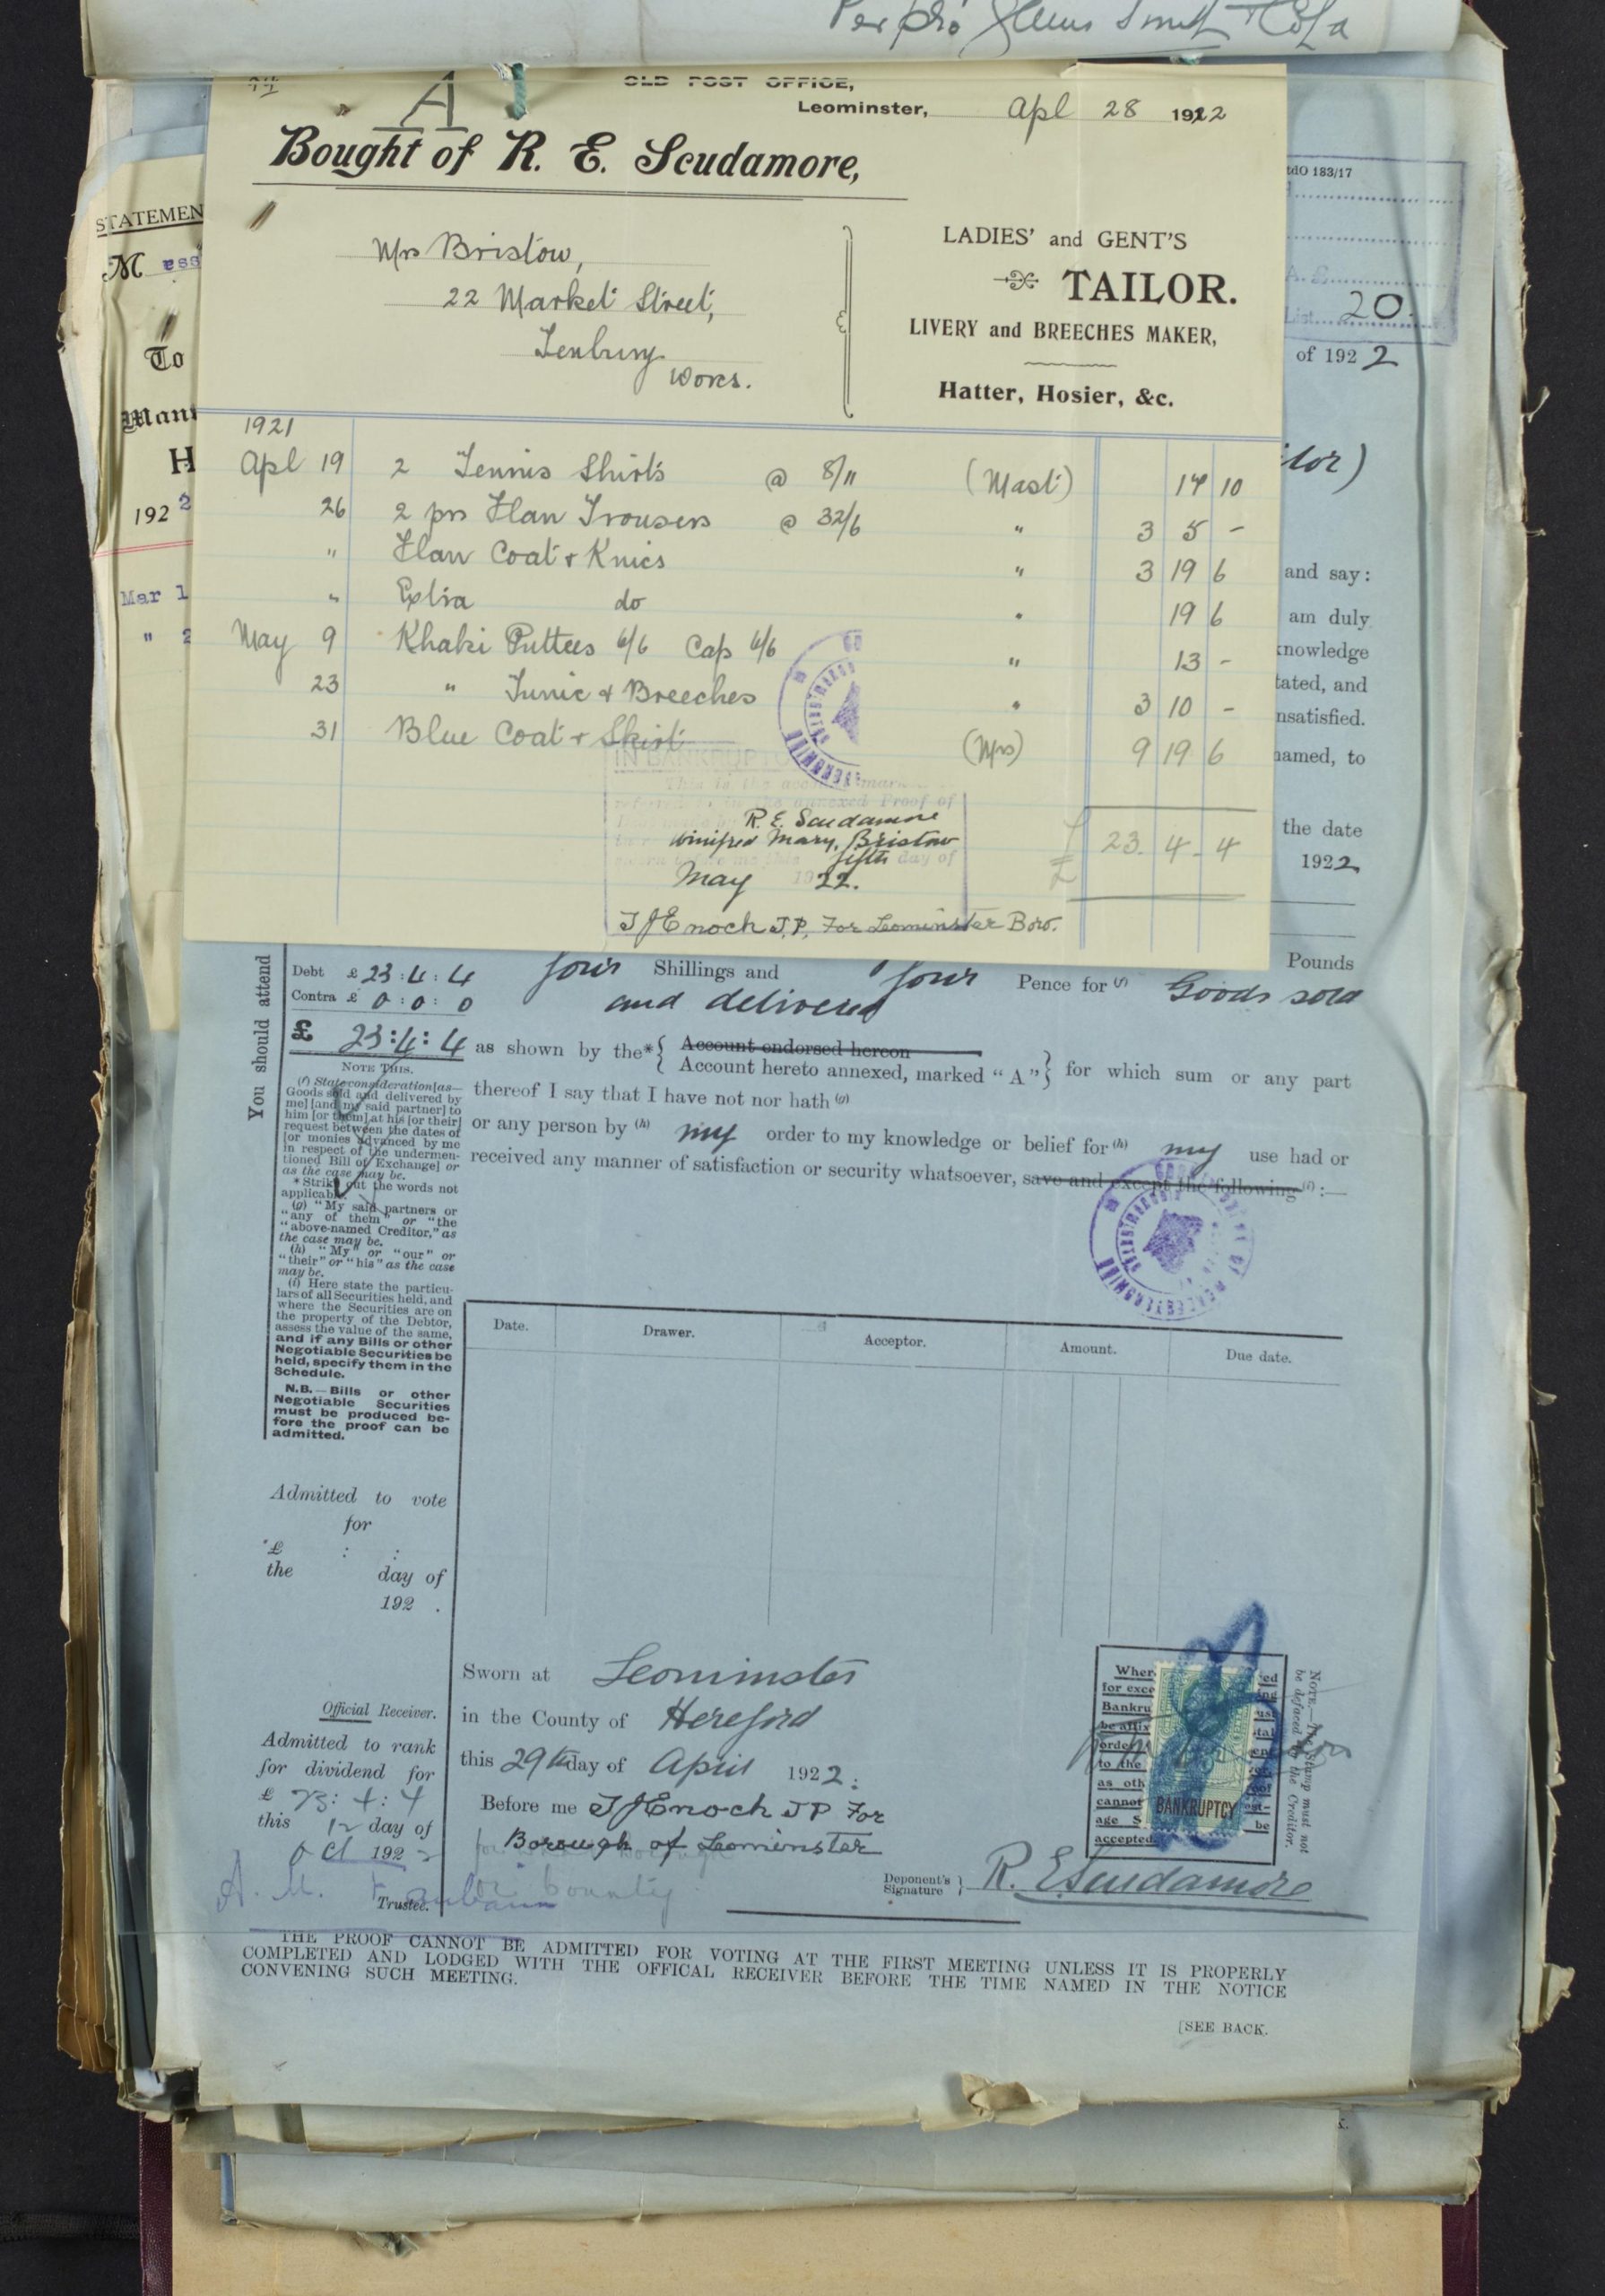 A
OLD POST OFFICE,
Leominster, Apl 28 1922
Bought of R. E. Scudamore,
Mrs Bristow,
22 Market Street,
Tenbury
Worcs.
LADIES' and GENT'S
TAILOR.
LIVERY and BREECHES MAKER,
Hatter, Hosier, &c.
1921
Apl 19 2 Tennis Shirts @ 8/11 (Mast) 17 10
26 2 prs Flan Trousers @ 32/6 " 3 5 -
" Flan Coat + Knics " 3 19 6
" Extra do " 19 6
May 9 Khaki Puttees 6/6 Cap 6/6 " 13 -
23 " Tunic & Breeches " 3 10 -
31 Blue Coat + Skirt (Mrs) 9 19 6
IN BANKRUPTCY
This is the account marked
referred to in the annexed Proof of
R. E. Scudamore
Winifred Mary, Bristow
fifth day of
May 1922.
£ 23. 4. 4
T J Enoch J.P. For Leominster Boro.
STATEMEN
M ess
To
Man
H
192 2
Mar 1
" 2
183/17
20.
of 192 2
and say:
am duly
knowledge
tated, and
nsatisfied.
named, to
the date
1922
Pounds
You should attend
Debt £ 23 : 4 : 4
Contra £ 0 : 0 : 0
£ 23 : 4 : 4
four Shillings and four Pence for (f) Goods sold
and delivered
as shown by the* { Account endorsed hereon
Account hereto annexed, marked "A" } for which sum or any part
thereof I say that I have not nor hath (g)
or any person by (h) my order to my knowledge or belief for (h) my use had or
received any manner of satisfaction or security whatsoever, save and except the following (i) :—
NOTE THIS.
(f) State consideration [as—
Goods sold and delivered by
me] [and my said partner] to
him [or them] at his [or their]
request between the dates of
[or monies advanced by me
in respect of the undermen-
tioned Bill of Exchange] or
as the case may be.
* Strike out the words not
applicable.
(g) "My said partners or
"any of them" or "the
"above-named Creditor," as
the case may be.
(h) "My" or "our" or
"their" or "his" as the case
may be.
(i) Here state the particu-
lars of all Securities held, and
where the Securities are on
the property of the Debtor,
assess the value of the same,
and if any Bills or other
Negotiable Securities be
held, specify them in the
Schedule.
N.B.—Bills or other
Negotiable Securities
must be produced be-
fore the proof can be
admitted.
Date. Drawer. Acceptor. Amount. Due date.
Admitted to vote
for
£ : :
the day of
192 .
Official Receiver.
Admitted to rank
for dividend for
£ 23 : 4 : 4
this 12 day of
Oct 192 2
Trustee.
Sworn at Leominster
in the County of Hereford
this 29th day of April 1922.
Before me T J Enoch J P For
Borough of Leominster
BANKRUPTCY
NOTE.—The Stamp must not
be defaced by the Creditor.
Deponent's
Signature } R. E. Scudamore
THE PROOF CANNOT BE ADMITTED FOR VOTING AT THE FIRST MEETING UNLESS IT IS PROPERLY
COMPLETED AND LODGED WITH THE OFFICAL RECEIVER BEFORE THE TIME NAMED IN THE NOTICE
CONVENING SUCH MEETING.
[SEE BACK.